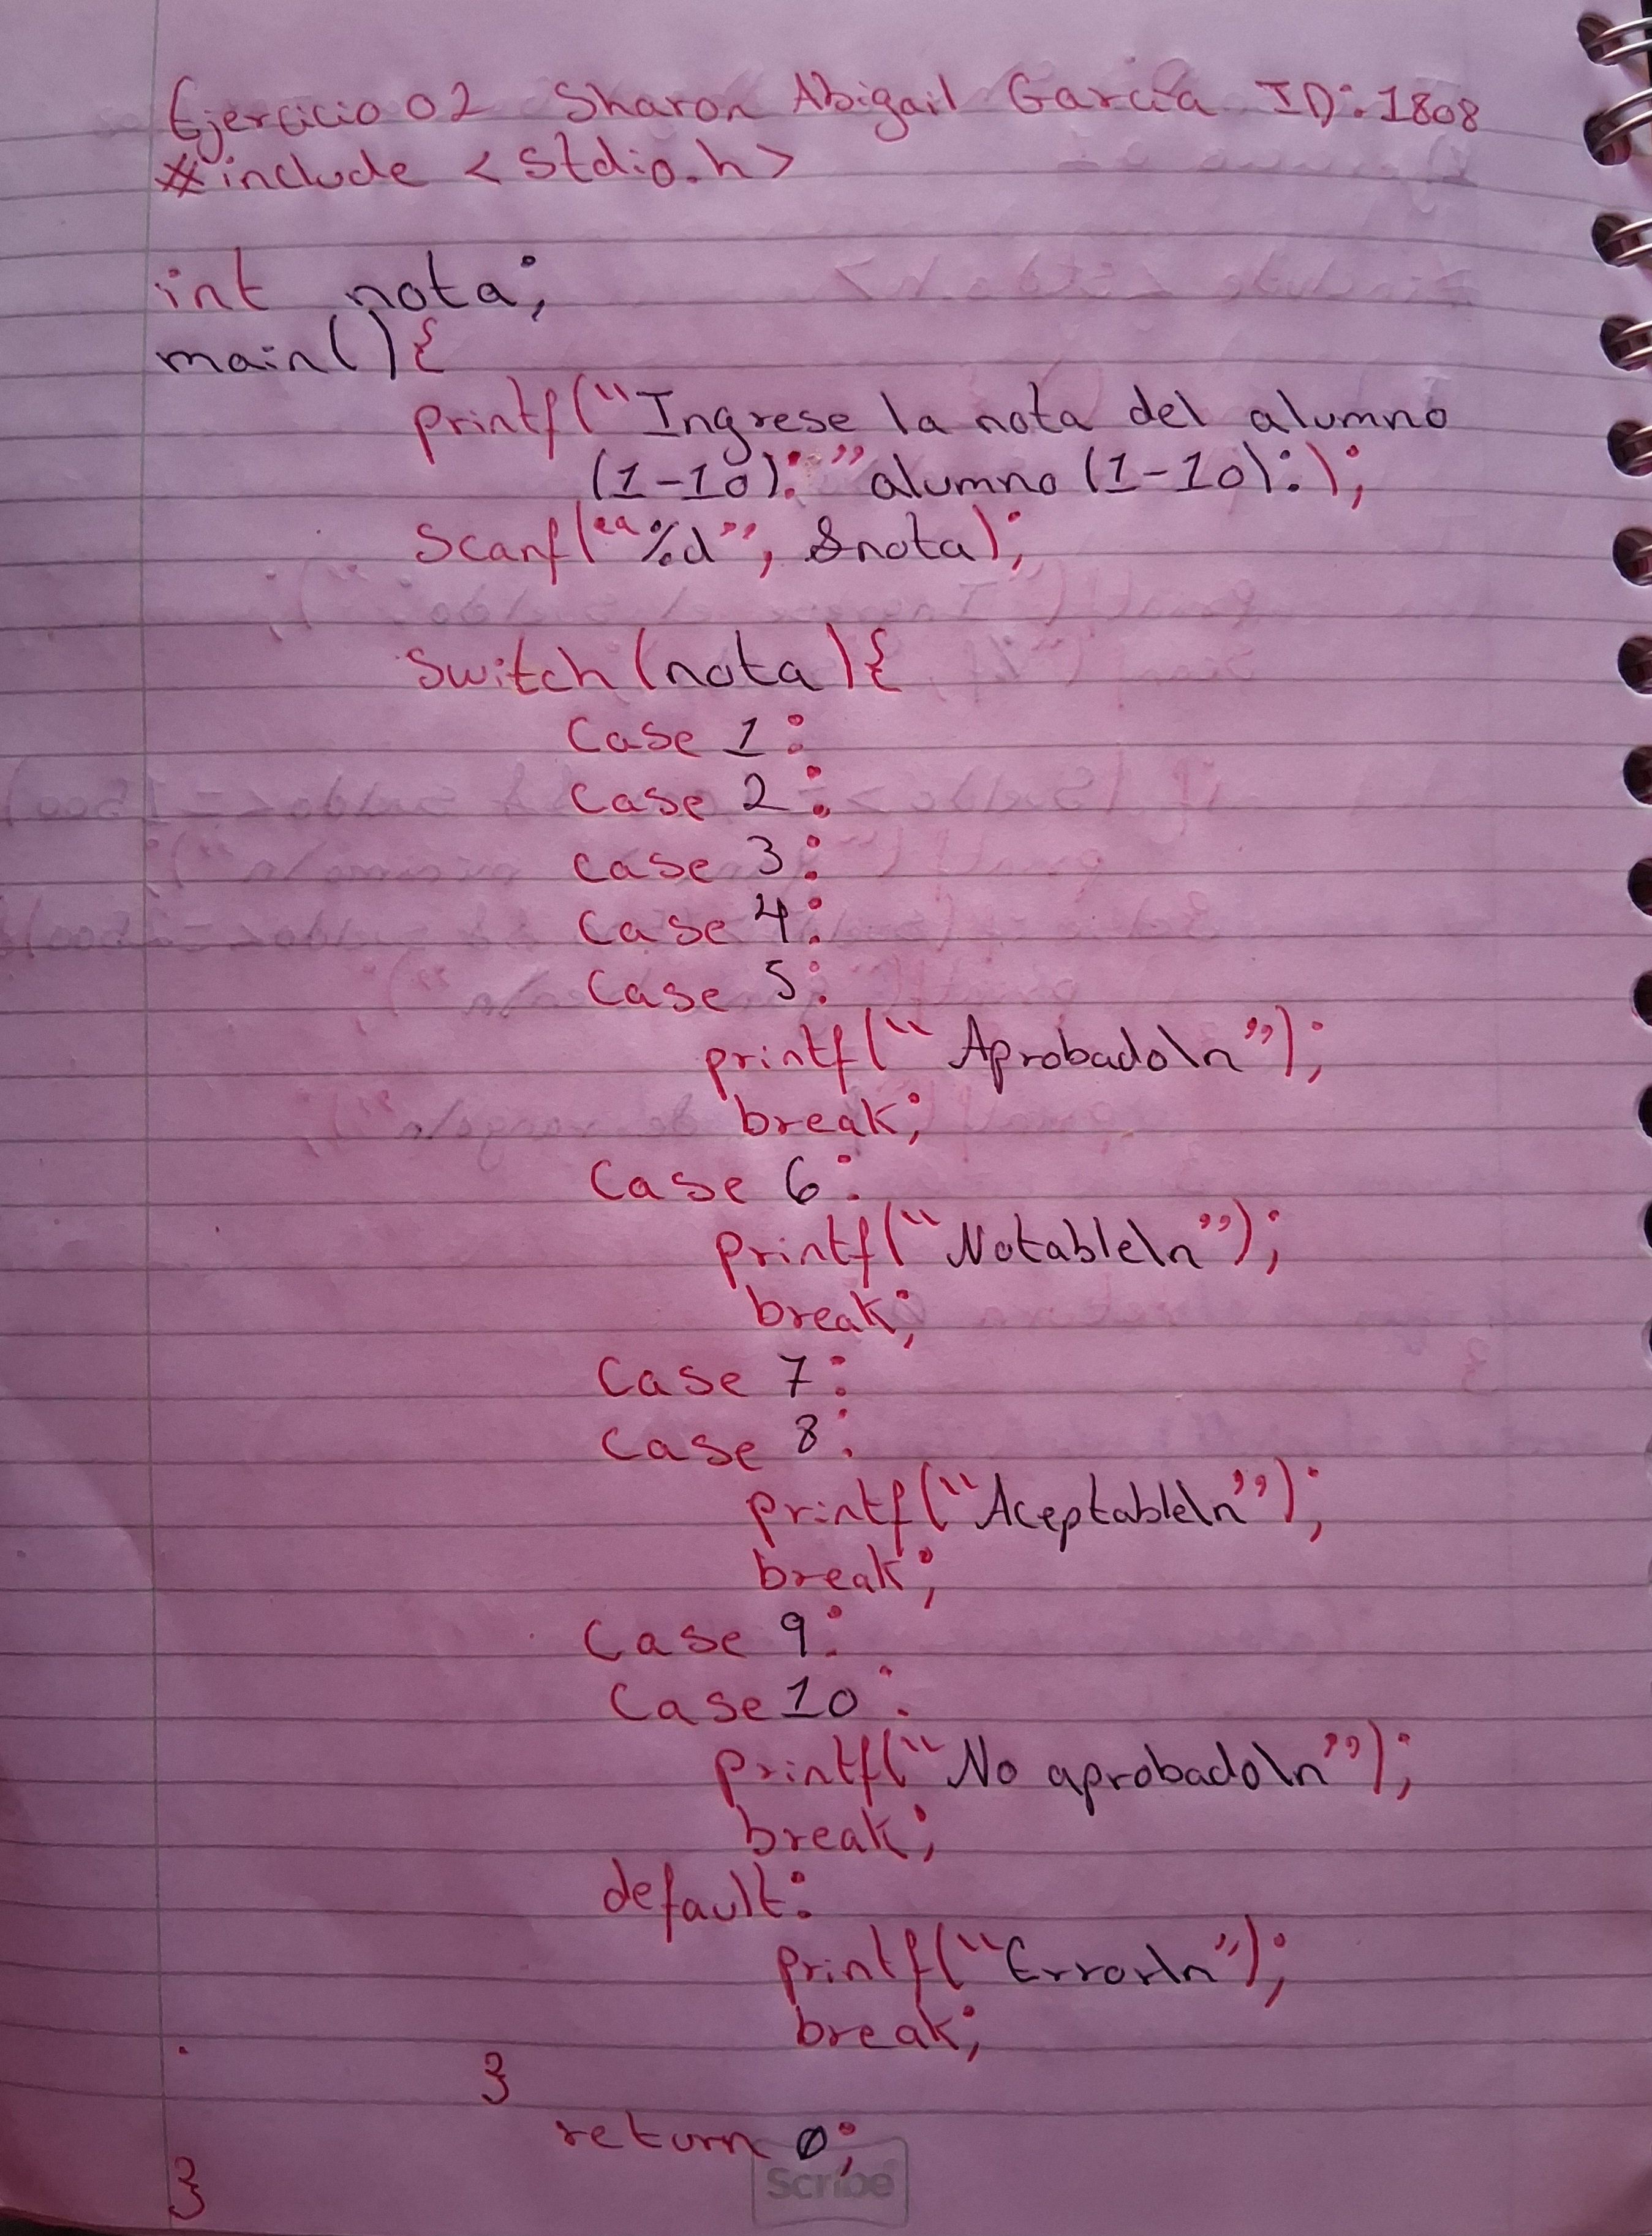 Ejercicio 02 Sharon Abigail García ID:1808
#include <stdio.h>
int nota;
main(){
printf("Ingrese la nota del alumno
(1-10): "alumno (1-10):);
Scanf(""%d", &nota);
Switch(nota){
Case 1:
Case 2:
Case 3:
Case 4:
Case 5:
printf("Aprobado\n");
break;
Case 6:
printf("Notable\n");
break;
Case 7:
Case 8:
printf("Aceptable\n");
break;
Case 9:
Case 10:
printf("No aprobado\n");
break;
default:
printf("Error\n");
break;
}
return 0;
}
Scribe